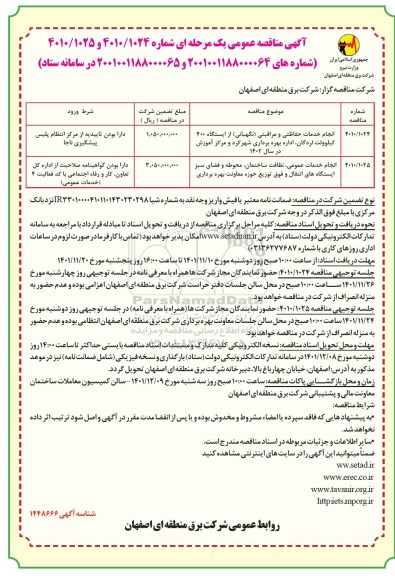 جمهوری اسلامی ایران
وزارت نیرو
شرکت برق منطقه‌ای اصفهان
آگهی مناقصه عمومی یک مرحله ای شماره ۴۰۱۰/۱۰۲۴ و ۴۰۱۰/۱۰۲۵
(شماره های ۲۰۰۱۰۰۱۱۸۸۰۰۰۰۶۴ و ۲۰۰۱۰۰۱۱۸۸۰۰۰۰۶۵ در سامانه ستاد)
شرکت مناقصه گزار: شرکت برق منطقه‌ای اصفهان
شماره مناقصه
موضوع مناقصه
مبلغ تضمین شرکت در مناقصه (ریال)
شرط ورود
۴۰۱۰/۱۰۲۴
انجام خدمات حفاظتی و مراقبتی (نگهبانی) از ایستگاه ۴۰۰
کیلوولت لردگان، اداره بهره برداری شهرکرد و مرکز آموزش
در سال ۱۴۰۲
۱,۰۵۰,۰۰۰,۰۰۰
دارا بودن تاییدیه از مرکز انتظام پلیس
پیشگیری ناجا
۴۰۱۰/۱۰۲۵
انجام خدمات عمومی، نظافت ساختمان، محوطه و فضای سبز
ایستگاه های انتقال و فوق توزیع حوزه معاونت بهره برداری
۳,۰۵۰,۰۰۰,۰۰۰
دارا بودن گواهینامه صلاحیت از اداره کل
تعاون، کار و رفاه اجتماعی با کد فعالیت ۴
(خدمات عمومی)
نوع تضمین شرکت در مناقصه: ضمانت نامه معتبر یا فیش واریز وجه نقد به شماره شبا نزد بانک
مرکزی با مبلغ فوق الذکر در وجه شرکت برق منطقه‌ای اصفهان
نحوه دریافت و تحویل اسناد مناقصه: کلیه مراحل برگزاری مناقصه از دریافت و تحویل اسناد تا مبادله قرارداد با مراجعه به سامانه
تدارکات الکترونیکی دولت (ستاد) به آدرس www.setadiran.ir امکان پذیر خواهد بود (تماس با کارفرما در صورت لزوم در ساعات
اداری روزهای کاری با شماره ۰۳۱۳۶۲۷۷۶۸۷)
مهلت دریافت اسناد: از ساعت ۱۰:۰۰ صبح روز دوشنبه مورخ ۱۴۰۱/۱۱/۱۰ تا ساعت ۱۶:۰۰ روز پنجشنبه مورخ ۱۴۰۱/۱۱/۲۰
جلسه توجیهی مناقصه ۴۰۱۰/۱۰۲۴: حضور نمایندگان مجاز شرکت ها (همراه با معرفی نامه) در جلسه توجیهی روز چهارشنبه مورخ
۱۴۰۱/۱۱/۲۶ ساعت ۱۰:۰۰ صبح در محل سالن جلسات دفتر حراست شرکت برق منطقه‌ای اصفهان الزامی بوده و عدم حضور به
منزله انصراف از شرکت در مناقصه خواهد بود.
جلسه توجیهی مناقصه ۴۰۱۰/۱۰۲۵: حضور نمایندگان مجاز شرکت ها (همراه با معرفی نامه) در جلسه توجیهی روز دوشنبه مورخ
۱۴۰۱/۱۱/۲۴ ساعت ۱۰:۰۰ صبح در محل سالن جلسات معاونت بهره برداری شرکت برق منطقه‌ای اصفهان الزامی بوده و عدم حضور
به منزله انصراف از شرکت در مناقصه خواهد بود.
مهلت و محل تحویل اسناد مناقصه: نسخه الکترونیکی کلیه مدارک و مستندات اسناد مناقصه بایستی حداکثر تا ساعت ۱۴:۰۰ روز
دوشنبه مورخ ۱۴۰۱/۱۲/۰۸ در سامانه تدارکات الکترونیکی دولت (ستاد) بارگذاری و نسخه فیزیکی (شامل ضمانت نامه) نیز در موعد
مذکور به آدرس: اصفهان، خیابان چهارباغ بالا، دبیرخانه شرکت برق منطقه‌ای اصفهان تحویل گردد.
زمان و محل بازگشایی پاکات مناقصه: ساعت ۱۰:۰۰ صبح روز سه شنبه مورخ ۱۴۰۱/۱۲/۰۹ - سالن کمیسیون معاملات ساختمان
معاونت مالی و پشتیبانی شرکت برق منطقه‌ای اصفهان
شرایط مناقصه:
*به پیشنهاد هایی که فاقد سپرده یا امضاء مشروط و مخدوش بوده و یا پس از انقضا مدت مقرر در آگهی و اصل شود ترتیب اثر داده
نخواهد شد.
*سایر اطلاعات و جزئیات مربوطه در اسناد مناقصه مندرج است.
ضمناً میتوانید این آگهی را در سایت های اینترنتی مشاهده کنید
ww.setad.ir
www.erec.co.ir
www.tavanir.org.ir
http:iets.mporg.ir
شناسه آگهی ۱۴۴۸۶۶۶
روابط عمومی شرکت برق منطقه‌ای اصفهان
ParsNamadData